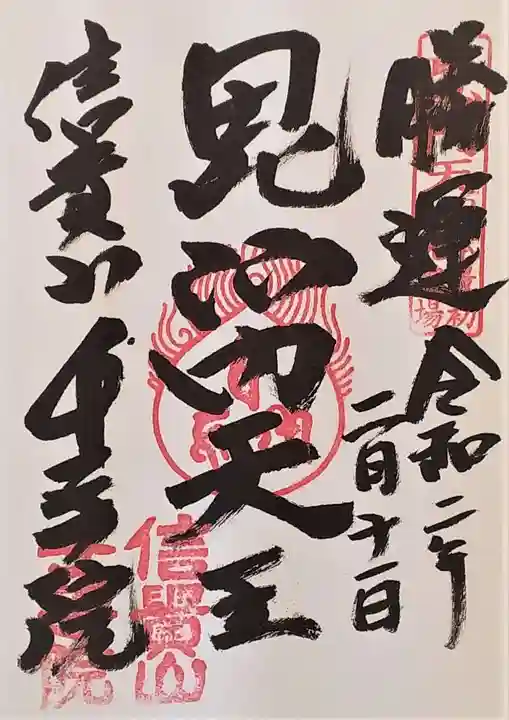 勝運
令和二年
二月十一日
毘沙門天王
信貴山
千手院
信貴山